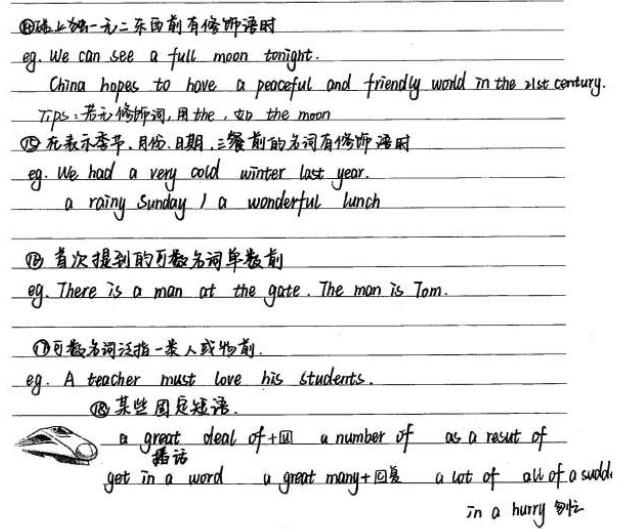 ⑭地上独一无二东西前有修饰语时
eg. We can see a full moon tonight.
China hopes to have a peaceful and friendly world in the 21st century.
Tips:若无修饰词,用the,如 the moon
⑮在表示季节、月份、日期、三餐前的名词有修饰语时
eg. We had a very cold winter last year.
a rainy Sunday / a wonderful lunch
⑯首次提到的可数名词单数前
eg. There is a man at the gate. The man is Tom.
⑰可数名词泛指一类人或物前.
eg. A teacher must love his students.
⑱某些固定短语.
a great deal of+ a number of as a resut of
插话
get in a word a great many+ a lot of all of a sudd
in a hurry 匆忙